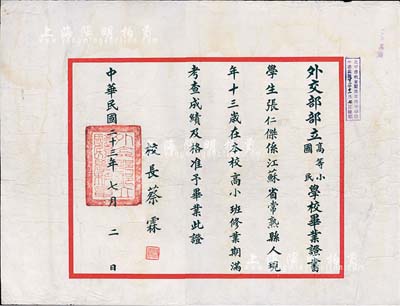 外交部部立高等小國民學校畢業證書
學生張仁傑係江蘇省常熟縣人現
年十三歲在本校高小班修業期滿
考查成績及格准予畢業此證
校長蔡霖
中華民國二十三年七月二日